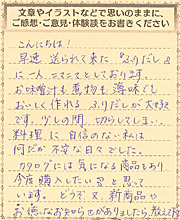 文章やイラストなどで思いのままに、
ご感想・ご意見・体験談をお書きください
こんにちは！
早速 送られて来た『ふりだし』
に一人、ニマニマとしております。
お味噌汁も煮物も薄味で
おいしく作れる ふりだしが大好き
です。少しの間、切らしてしまい…
料理に自信のない私は
何だか不安な日々でした。
カタログには気になる商品もあり
今度購入したいと思って
います。どうぞ又、新商品や
お徳なお知らせがありましたら、教えて下